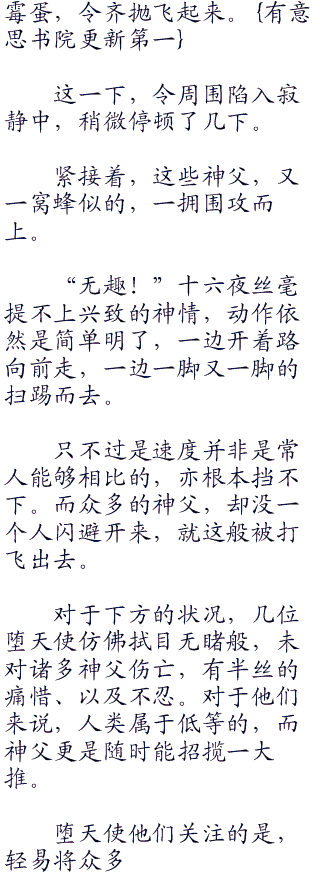 霉蛋，令齐抛飞起来。{有意
思书院更新第一}
这一下，令周围陷入寂
静中，稍微停顿了几下。
紧接着，这些神父，又
一窝蜂似的，一拥围攻而
上。
“无趣！”十六夜丝毫
提不上兴致的神情，动作依
然是简单明了，一边开着路
向前走，一边一脚又一脚的
扫踢而去。
只不过是速度并非是常
人能够相比的，亦根本挡不
下。而众多的神父，却没一
个人闪避开来，就这般被打
飞出去。
对于下方的状况，几位
堕天使仿佛拭目无睹般，未
对诸多神父伤亡，有半丝的
痛惜、以及不忍。对于他们
来说，人类属于低等的，而
神父更是随时能招揽一大
推。
堕天使他们关注的是，
轻易将众多